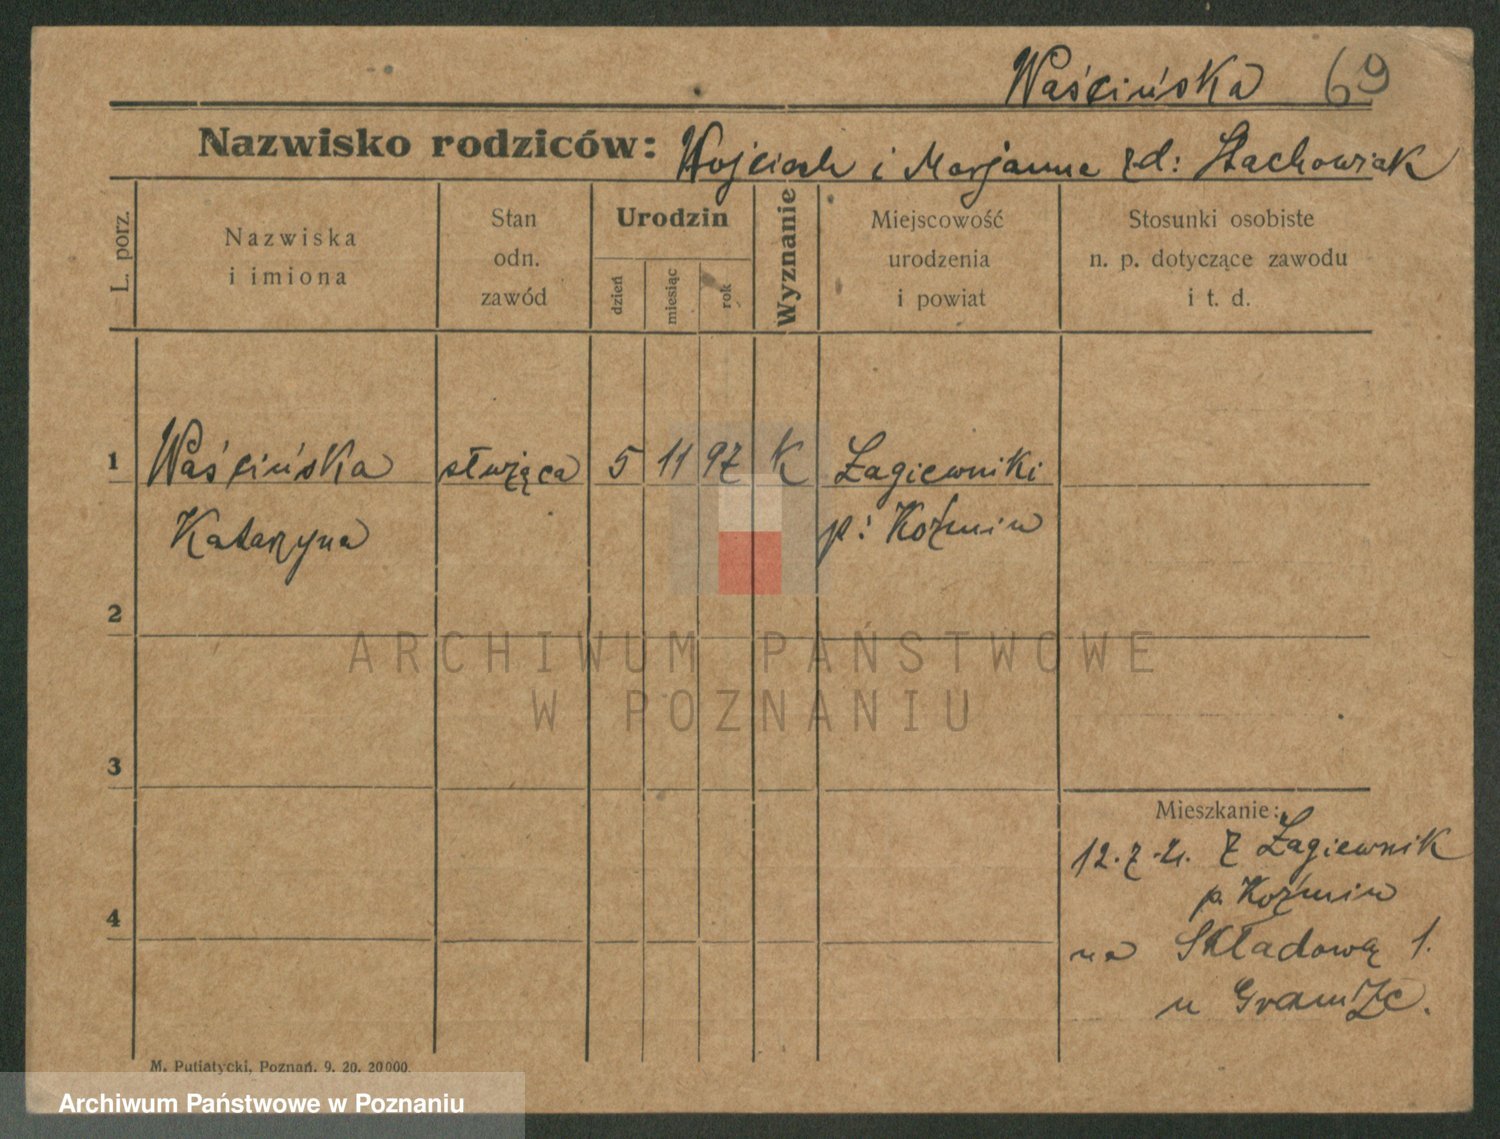 Waścińska 69
Nazwisko rodziców: Wojciech i Marjanna zd: Stachowiak
L. porz.
Nazwiska
i imiona
Stan
odn.
zawód
Urodzin
dzień
miesiąc
rok
Wyznanie
Miejscowość
urodzenia
i powiat
Stosunki osobiste
n. p. dotyczące zawodu
i t. d.
1 Waścińska służąca 5 11 97 K Łagiewniki
Katarzyna p: Koźmin
2
3
4
Mieszkanie:
12.7.21. Z Łagiewnik
p. Koźmin
na Składową 1.
u
M. Putiatycki, Poznań. 9. 20. 20000.
ARCHIWUM PAŃSTWOWE
W POZNANIU
Archiwum Państwowe w Poznaniu